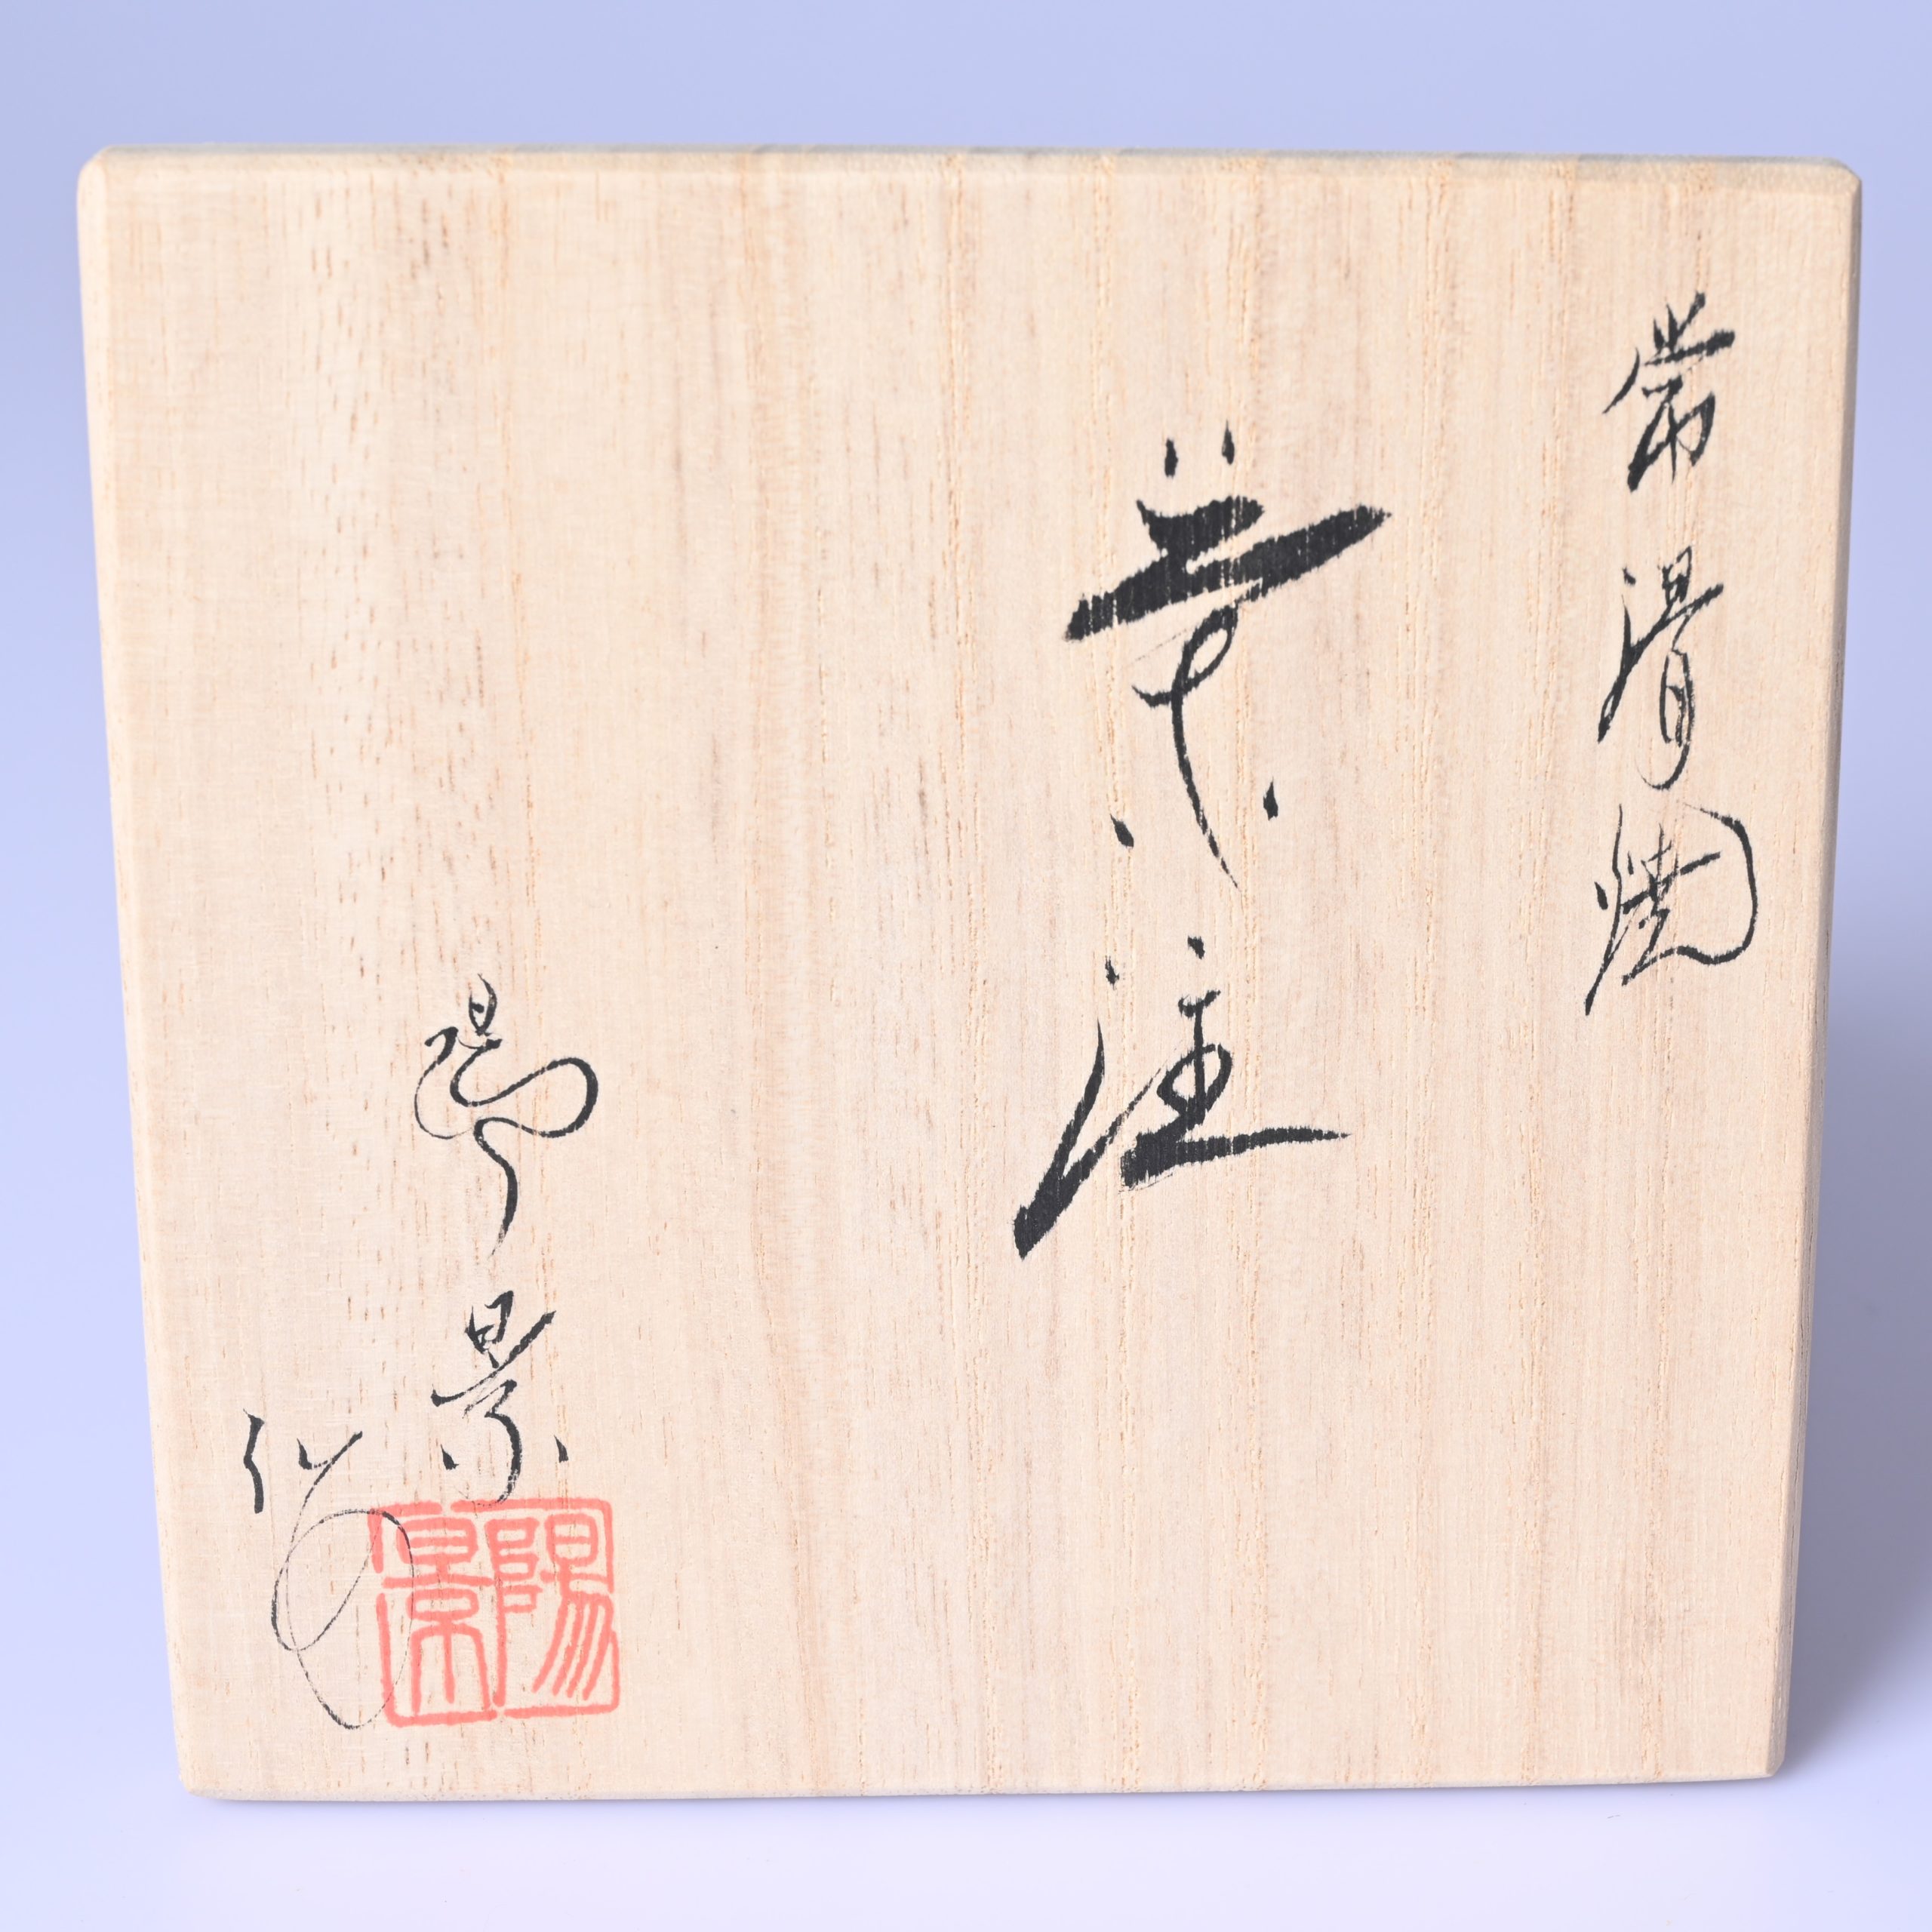 常滑焼
茶注
陽景
陽景